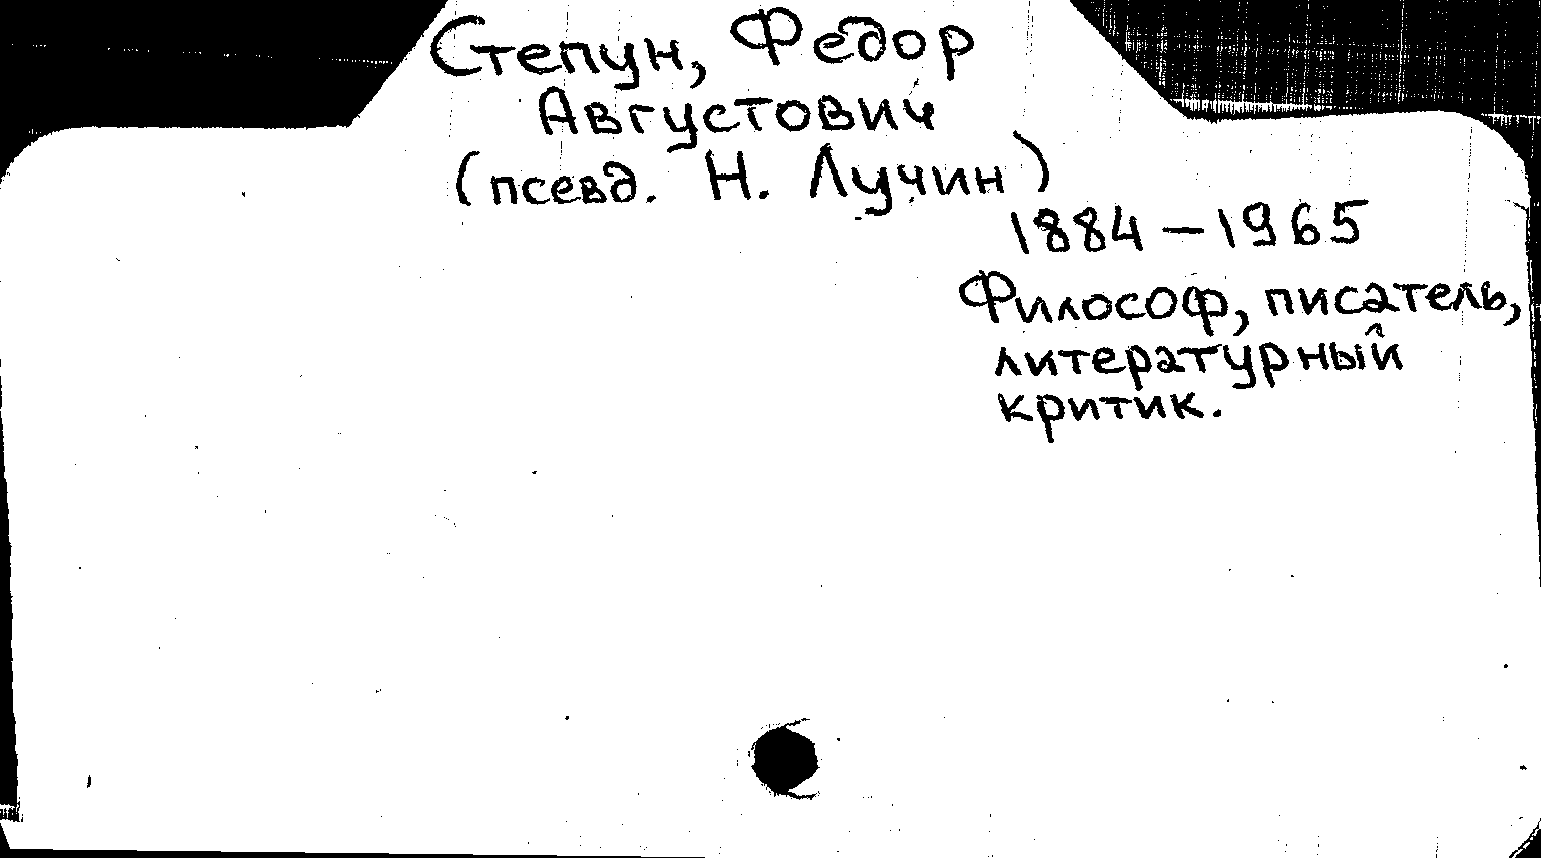 Степун, Федор
Августович
(псевд. Н. Лучин)
1884 – 1965
Философ, писатель,
литературный
критик.